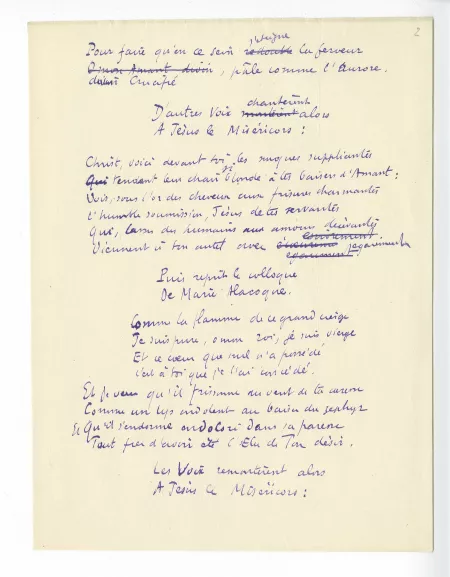 2
Pour faire qu'en ce sein s'éteigne la ferveur
O mon Amant divin, pâle comme l'Aurore.
divin Crucifié
D'autres Voix chantèrent alors
A Jésus le Miséricors :
Christ, voici devant toi, les nuques suppliantes
Qui tendent leur chair blonde à tes baisers d'Amant :
Vois, sous l'or des cheveux aux frisures charmantes
L'humble soumission, Jésus de tes servantes
Qui, lasses des humains aux amours décevantes
Viennent à ton autel avec
Puis reprit le colloque
De Marie Alacoque.
Comme la flamme de ce grand cierge
Je suis pure, ô mon roi, je suis vierge
Et ce cœur que nul n'a possédé
C'est à toi que je l'ai concédé.
Et je veux qu'il frissonne au vent de ta caresse
Comme un lys indolent au baiser du zéphyr
Et Qu'il s'endorme endolori dans sa paresse
Tout fier d'avoir été l'Elu de Ton désir.
Les Voix remontèrent alors
A Jésus le Miséricors :